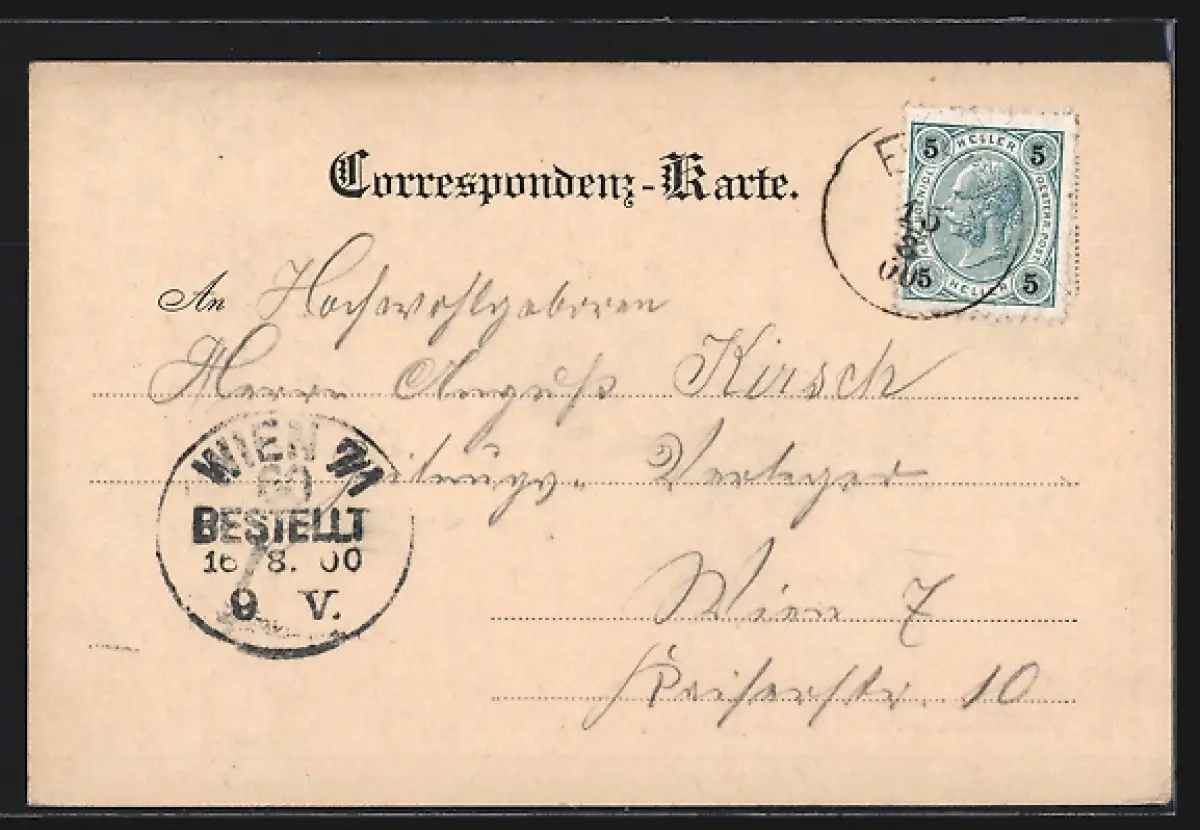 Correspondenz-Karte.
5 HELLER 5
OESTERR. POST
5 HELLER 5
15
8
00
An Hochwohlgeboren
Herrn August Kirsch
Zeitungs- Verleger
WIEN 7/1
BESTELLT
16 8. 00
9. V.
Wien 7
Kaiserstr. 10